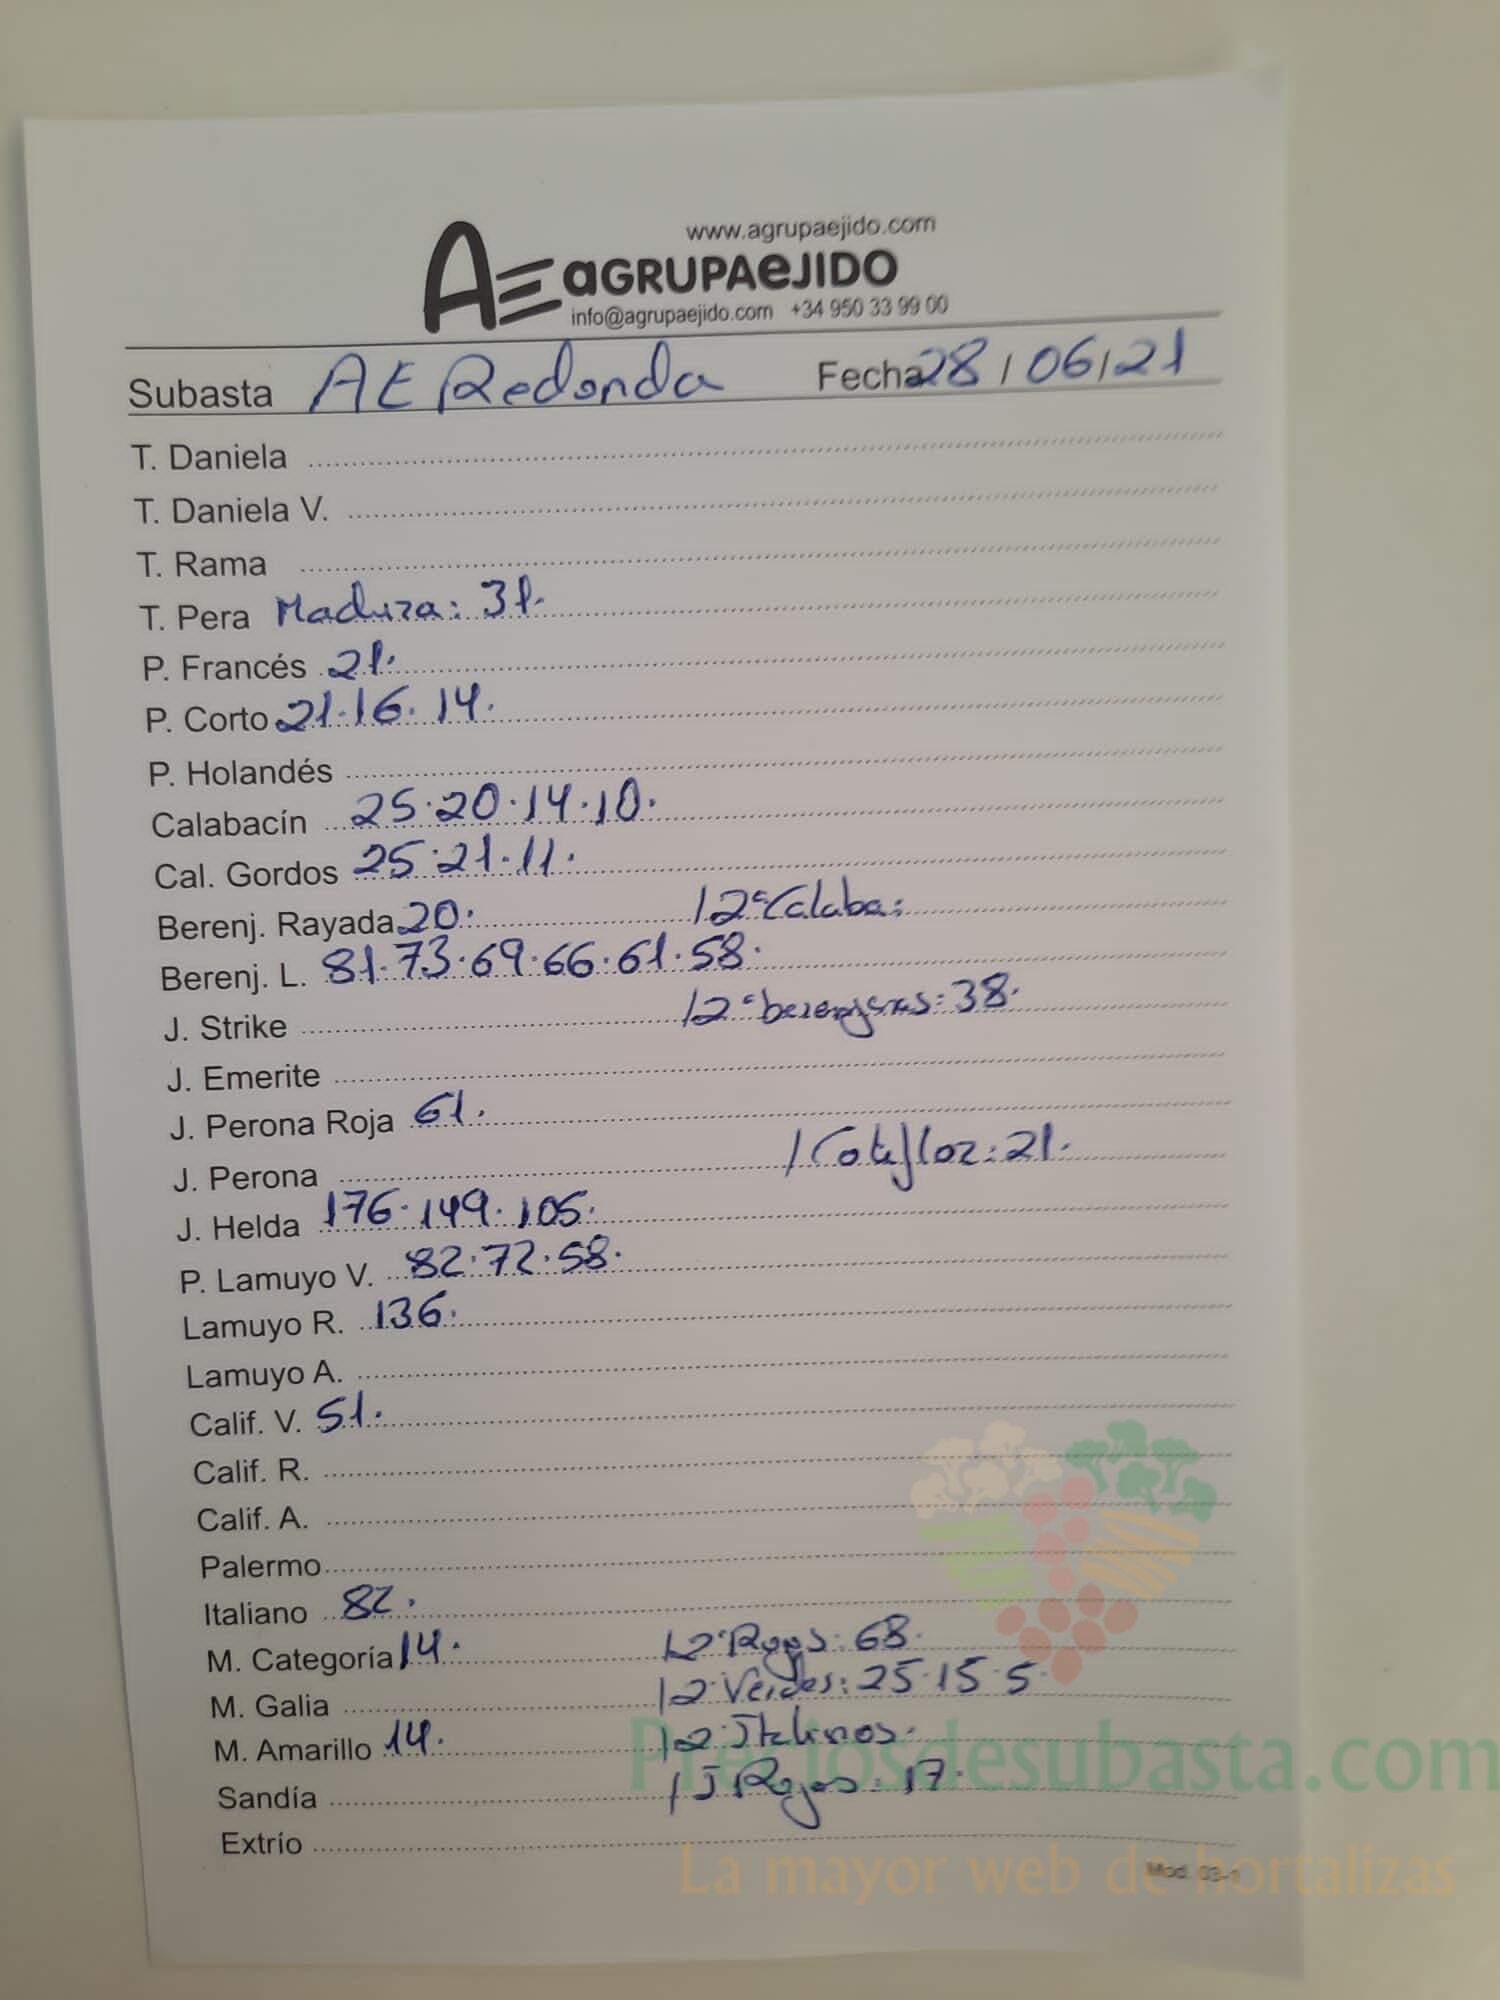 www.agrupaejido.com
AE aGRUPAeJIDO
info@agrupaejido.com +34 950 33 99 00
Subasta AE Redonda Fecha 28/06/21
T. Daniela
T. Daniela V.
T. Rama
T. Pera Madura: 31.
P. Francés 21.
P. Corto 21.16.14.
P. Holandés
Calabacín 25.20.14.10.
Cal. Gordos 25.21.11.
Berenj. Rayada 20. / 2ª Calaba:
Berenj. L. 81.73.69.66.61.58.
J. Strike / 2ª berenjenas: 38.
J. Emerite
J. Perona Roja 61.
J. Perona / Coteflor: 21.
J. Helda 176.149.105.
P. Lamuyo V. 82.72.58.
Lamuyo R. 136.
Lamuyo A.
Calif. V. 51.
Calif. R.
Calif. A.
Palermo
Italiano 82.
M. Categoría 14. / 2ª Rojos: 68.
M. Galia / 2ª Verdes: 25.15.5.
M. Amarillo 14. / 2ª Italinos.
Sandía / J Rojos: 17.
Extrío
Mod. 03-1
Preciosdesubasta.com
La mayor web de hortalizas